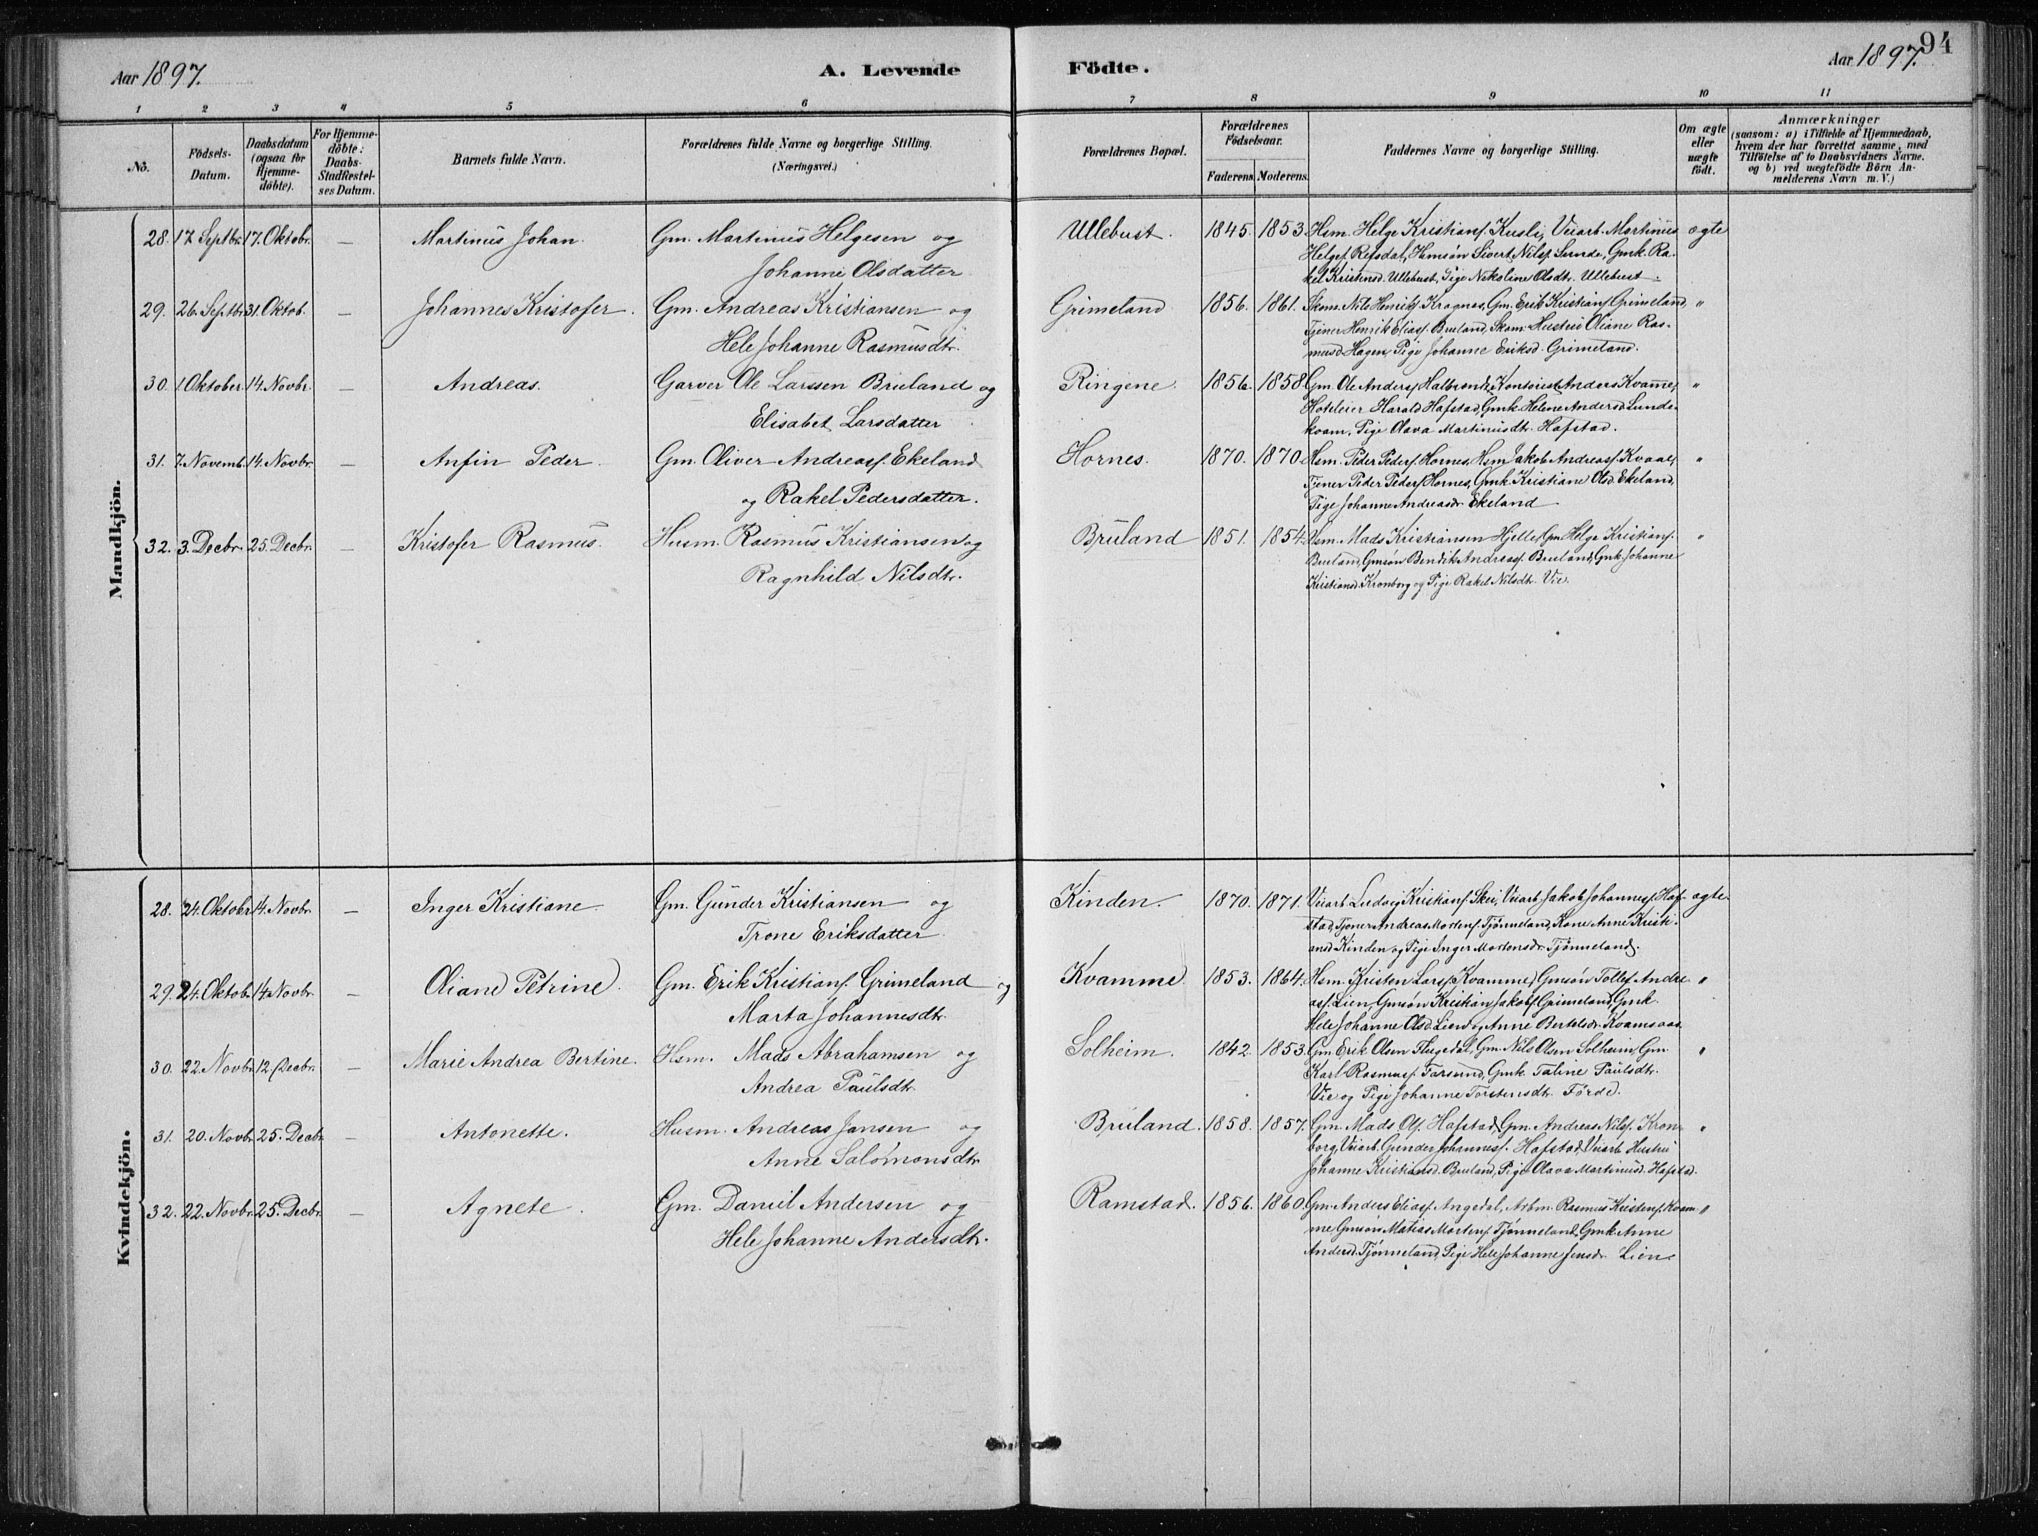 94
Aar 1897.
A. Levende
Födte.
Aar 1897.
1 2 3 4 5 6 7 8 9 10 11
No.
Födsels-
Datum.
Daabsdatum
(ogsaa for
Hjemme-
döbte).
For Hjemme-
döbte:
Daabs-
Stadfæstel-
ses Datum.
Barnets fulde Navn.
Forældrenes fulde Navne og borgerlige Stilling.
(Næringsvei.)
Forældrenes Bopæl.
Forældrenes
Födselsaar.
Faderens. Moderens.
Faddernes Navne og borgerlige Stilling.
Om ægte
eller
uægte
født.
Anmærkninger
(saasom: a) i Tilfælde af Hjemmedaab,
hvem der har forrettet samme, med
Tilföielse af to Daabsvidners Navne.
og b) ved uægtefödte Börn An-
melderens Navn m. V.)
Mandkjön.
28. 17 Septbr. 17. Oktobr. — Martinus Johan. Gm. Martinus Helgesen og
Johanne Olsdatter
Ullebust. 1845. 1853. Hsm. Helge Kristians. Kusli, Veiarb. Martinus ægte
Helges. Refsdal, Hsmsøn Sivert Nils. Sunde, Gmk. Ra-
kel Kristensd. Ullebust, Pige Nikoline Olsdt. Ullebust
29. 26. Septbr. 31. Oktob. — Johannes Kristofer. Gm. Andreas Kristiansen og
Hele Johanne Rasmusdtr.
Grimeland 1856. 1861. Skom. Nils Henriks. Kragnæs, Gm. Erik Kristians. Grimeland, "
Tjener Henrik Elias. Bruland, Skom. Hustru Oliane Ras-
musd. Hagen, Pige Johanne Eriksd. Grimeland.
30. 1. Oktober. 14. Novbr. — Andreas. Garver Ole Larssen Bruland og
Elisabet Larsdatter
Ringene 1856. 1858. Gm. Ole Anders. Halbrend, Kontorist Anders Kvamme, "
Hoteleier Harald Hafstad, Gmk. Helene Andersd. Lunde-
kvam, Pige Olava Martinusdt. Hafstad.
31. 7. Novemb. 14. Novbr. — Anfin Peder. Gm. Oliver Andreas. Ekeland
og Rakel Pedersdatter.
Hornes. 1870. 1870. Hsm. Peder Peders. Hornes, Hsm. Jakob Andreas. Kvaal, "
Tjener Peder Peders. Hornes, Gmk. Kristiane Olsd. Ekeland,
Pige Johanne Andreasdr. Ekeland
32. 3. Decbr. 25. Decbr. — Kristofer Rasmus. Husm. Rasmus Kristiansen og
Ragnhild Nilsdtr.
Bruland 1851. 1854. Hsm. Mads Kristiansen Hjelle, Gm. Helge Kristians. "
Bruland, Gmsøn Bendik Andreas. Bruland, Gmk. Johanne
Kristiansd. Kronborg og Pige Rakel Nilsdt. Vie.
Kvindekjön.
28. 24. Oktobr. 14. Novbr. — Inger Kristiane. Gm. Gunder Kristiansen og
Trone Eriksdatter.
Kinden. 1870. 1871. Veiarb. Ludvig Kristians. Skei, Veiarb. Jakob Johannes. Haf- ægte.
stad, Tjener Andreas Mortens. Tjønneland, Kone Anne Kristi-
ansd. Kinden og Pige Inger Mortensdr. Tjønneland.
29. 24. Oktob. 14. Novbr. — Oliane Petrine. Gm. Erik Kristians. Grimeland og
Marta Johannesdtr.
Kvamme 1853. 1864. Hsm. Kristen Lars. Kvamme, Gmsøn Tollef Andre- "
as. Lien, Gmsøn Kristian Jakobs. Grimeland, Gmk.
Hele Johanne Olsd. Lien og Anne Bertelsdr. Kvamsaas
30. 22. Novbr. 12. Decbr. — Marie Andrea Bertine. Hsm. Mads Abrahamsen og
Andrea Paulsdtr.
Solheim. 1842. 1853. Gm. Erik Olsen Flugedal, Gm. Nils Olsen Solheim, Gm. "
Karl Rasmus. Farsund, Gmk. Taline Paulsdtr.
Vie og Pige Johanne Torstensdt. Førde.
31. 20. Novbr. 25. Decbr. — Antonette. Husm. Andreas Jansen og
Anne Salomonsdtr.
Bruland. 1858. 1857. Gm. Mads Ols. Hafstad, Gm. Andreas Nils. Kron- "
borg, Veiarb. Gunder Johannes. Hafstad, Veiarb. Hustru
Johanne Kristiansd. Bruland, Pige Olava Martinusd. Hafstad.
32. 22. Novbr. 25. Decbr. — Agnete. Gm. Daniel Andersen og
Hele Johanne Andersdtr.
Ramstad. 1856. 1860. Gm. Anders Elias. Angedal, Arbm. Rasmus Kristens. Kvam- "
me, Gmsøn Matias Mortens. Tjønneland, Gmk. Anne
Andersd. Tjønneland, Pige Hele Johanne Jensdr. Lien.